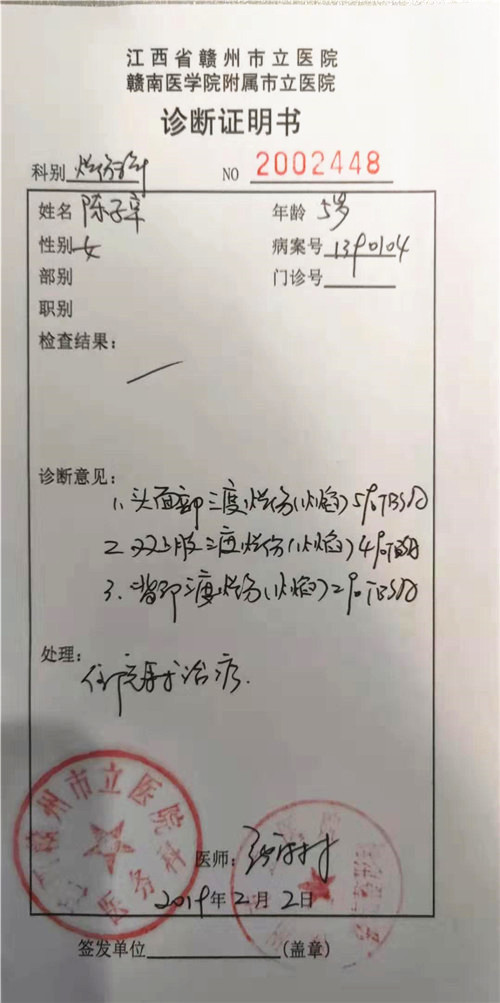 江西省赣州市立医院
赣南医学院附属市立医院
诊断证明书
科别 烧伤科 NO 2002448
姓名 陈子 年龄 5岁
性别 女 病案号 1390104
部别 门诊号
职别
检查结果：
诊断意见：
1、头面部三度烧伤(火焰)5%TBSA
2、双上肢三度烧伤(火焰)4%TBSA
3、背部三度烧伤(火焰)2%TBSA
处理：
住院手术治疗.
赣州市立医院
医务科
医师：
2019年2月2日
签发单位 (盖章)